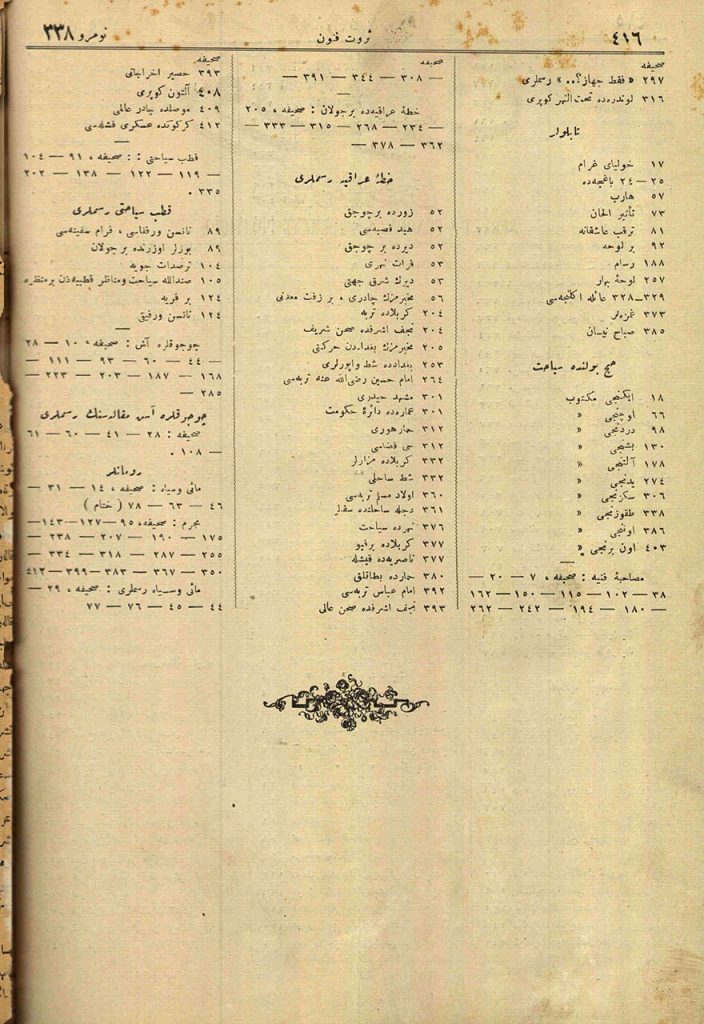 ٤١٦
ثروت فنون
نومرو ٣٣٨
صحيفه
٢٩٧ « فقط جهاز؟.. » رسملرى
٣١٦ لوندره‌ده تحت النهر كوپرى
تابلولر
١٧ خوليای غرام
٢٥ — ٢٤ باغچه‌ده
٥٧ هارپ
٧٣ تأثير الحان
٨١ ترقب عاشقانه
٩٢ بر لوحه
١٨٨ رسام
٢٥٧ لوحۀ بهار
٣٢٩—٣٢٨ عائله اكلنجه‌سى
٣٧٣ غمزه‌لر
٣٨٥ صباح نيسان
حج يولنده سياحت
١٨ ايكنجى مكتوب
٦٦ اوچنجى »
٩٨ دردنجى »
١٣٠ بشنجى »
١٧٨ آلتنجى »
٢٧٤ يدنجى »
٣٠٦ سكزنجى »
٣٣٨ طقوزنجى »
٣٨٦ اوننجى »
٤٠٣ اون برنجى »
مصاحبۀ فنيه : صحيفه ، ٧ — ٢٠ —
٣٨ — ١٠٢ — ١١٥ — ١٥٠ — ١٦٢
— ١٨٠ — ١٩٤ — ٢٤٢ — ٢٦٢
صحيفه
— ٣٠٨ — ٣٤٤ — ٣٩١ —
خطۀ عراقيه‌ده بر جولان : صحيفه ، ٢٠٥
— ٢٣٤ — ٢٦٨ — ٣١٥ — ٣٣٣ —
٣٦٢ — ٣٧٨ —
خطۀ عراقيه رسملرى
٥٢ زورده بر چوجق
٥٢ هيد قصبه‌سى
٥٢ ديرده بر چوجق
٥٣ فرات نهرى
٥٣ ديرك شرق جهتى
٥٦ مخبرمزك چادرى ، بر زفت معدنى
٢٠٤ كربلاده تربه
٢٠٤ نجف اشرفده صحن شريف
٢٠٥ مخبرمزك بغداددن حركتى
٢٥٣ بغدادده شط واپورلرى
٢٦٤ امام حسين رضى الله عنه تربه‌سى
٣٠١ مشهد حيدرى
٣٠١ عماره‌ده دائرۀ حكومت
٣١٢
٣١٢ حى قضاسى
٣٣٢ كربلاده مزارلر
٣٣٢ شط ساحلى
٣٦٠ اولاد مسلم تربه‌سى
٣٦١ دجله ساحلنده سفلر
٣٧٦ نهرده سياحت
٣٧٧ كربلاده
٣٧٧ ناصريه‌ده قيشله
٣٨٠ بطاقلق
٣٩٢ امام عباس تربه‌سى
٣٩٣ نجف اشرفده صحن عالى
صحيفه
٣٩٣ حصير اخراجاتى
٤٠٨ آلتون كوپرى
٤٠٩ موصلده چادر عالمى
٤١٢ كركوكده عسكرى قشله‌سى
قطب سياحتى : صحيفه ، ٩١ — ١٠٤
— ١١٩ — ١٢٢ — ١٣٨ — ٢٠٢
٣٣٥ .
قطب سياحتى رسملرى
٨٩ نانسن ورفقاسى ، فرام سفينه‌سى
٨٩ بوزلر اوزرنده بر جولان
١٠٤ ترصدات جويه
١٠٥ سياحت ومناظر قطبيه‌دن بر منظره
١٢٤ بر قريه
١٢٤ نانسن ورفيقى
چوجوقلره آش : صحيفه ، ١٠ — ٢٨
— ٤٤ — ٦٠ — ٩٣ — ١١١ —
١٦٨ — ١٨٧ — ٢٠٣ — ٢٢٣ —
— ٢٨٥
چوجوقلره آش مقاله‌سنك رسملرى
صحيفه : ٢٨ — ٤١ — ٦٠ — ٦١
— ١٠٨ .
رومانلر
مائى وسياه : صحيفه ، ١٤ — ٣١ —
٤٦ — ٦٣ — ٧٨ ( ختام )
مجرم : صحيفه، ٩٥ —١٢٧—١٤٣—
١٧٥ — ١٩٠ — ٢٠٧ — ٢٣٨ —
٢٥٥ — ٢٨٧ — ٣١٨ — ٣٣٤ —
٣٥٠ — ٣٦٧ — ٣٨٣ —٣٩٩—٤١٢
مائى وسياه رسملرى : صحيفه ، ٢٩ —
٤٤ — ٤٥ — ٧٦ — ٧٧